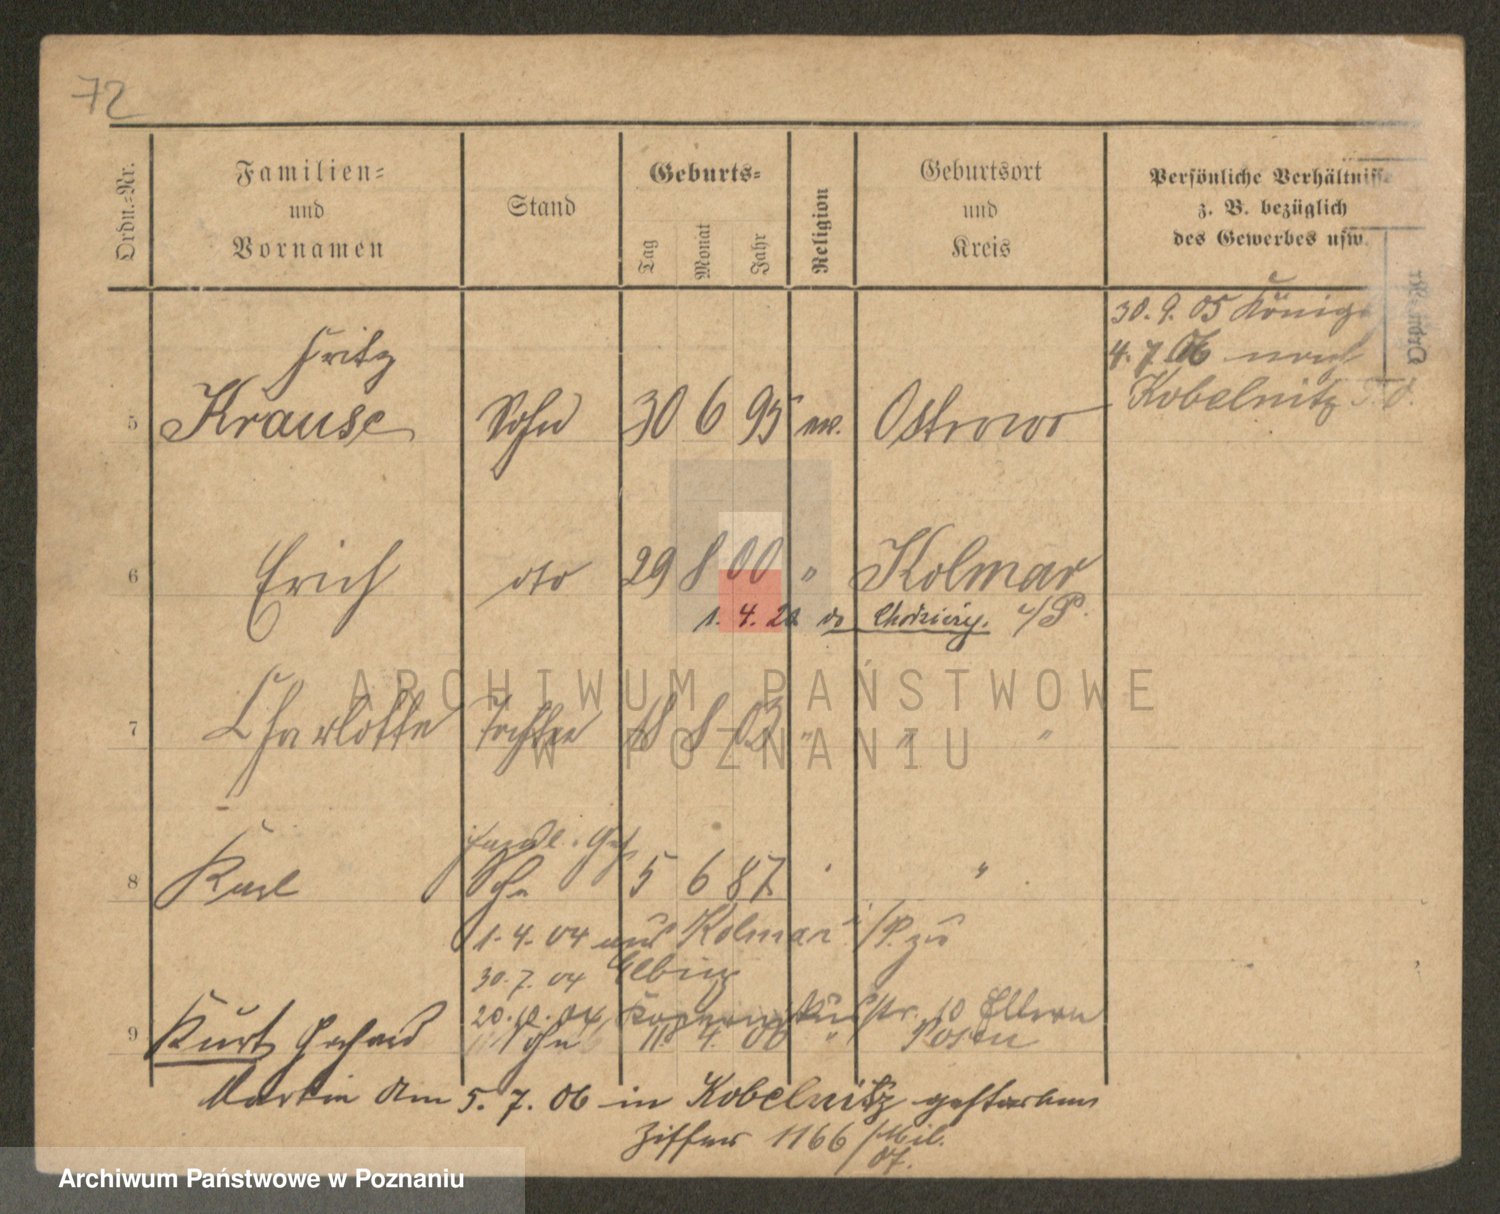 72
Ordn.-Nr.
Familien-
und
Vornamen
Stand
Geburts-
Tag
Monat
Jahr
Religion
Geburtsort
und
Kreis
Persönliche Verhältnisse
z. B. bezüglich
des Gewerbes usw.
Ordn.-Nr
30. 9. 05 König
4. 7. 06 nach
Kobelnitz
Fritz
5 Krause Sohn 30 6 95 ev. Ostrowo
6 Erich dto 29 8 00 " Kolmar
1. 4. 20 do Chodzież. i/P.
7 Charlotte Tochter 18 8 03 " " "
Handl. Geh
8 Karl Sohn 5 6 87 " "
1. 4. 04 aus Kolmar i/P. zu
30. 7. 04 Elbing
20. 10. 04 Kopernikusstr. 10 Eltern
9 Kurt Gerhard Sohn 11. 4. 06 " Posen
Martin Am 5. 7. 06 in Kobelnitz gestorben
Ziffer 1166/Mil.
07.
ARCHIWUM PAŃSTWOWE
W POZNANIU
Archiwum Państwowe w Poznaniu